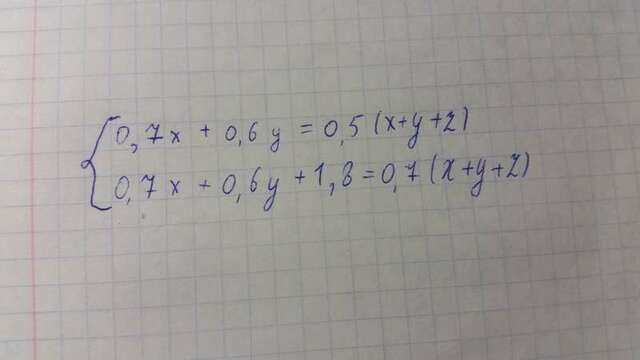 0,7x + 0,6y = 0,5(x+y+2)
0,7x + 0,6y + 1,8 = 0,7(x+y+2)